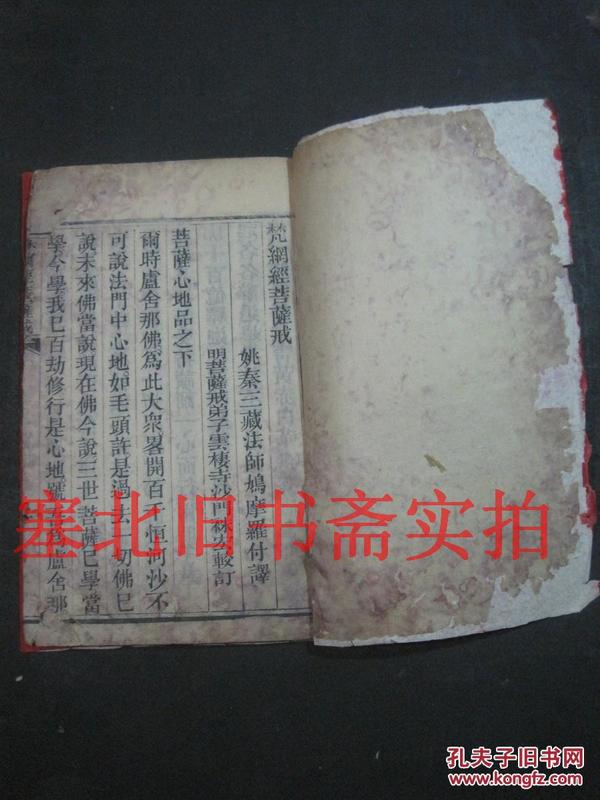 梵網經菩薩戒
姚秦三藏法師鳩摩羅什譯
明菩薩戒弟子雲棲寺沙門袾宏較訂
菩薩心地品之下
爾時盧舍那佛爲此大衆畧開百千恒河沙不
可說法門中心地如毛頭許是過去一切佛已
說未來佛當說現在佛今說三世菩薩已學當
學今學我已百劫修行是心地號吾爲盧舍那
塞北旧书斋实拍
孔夫子旧书网
www.kongfz.com